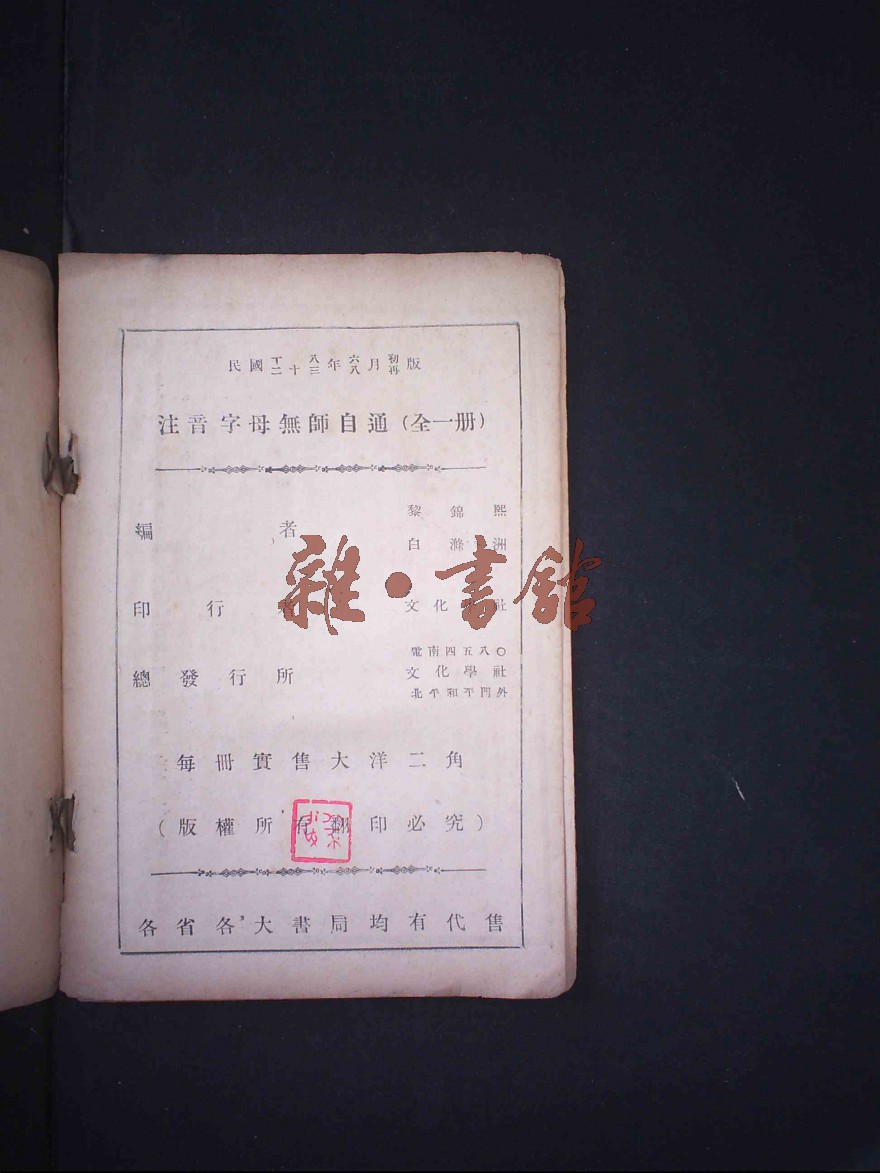 民國十八年六月初版
二十三年八月再版
注音字母無師自通(全一册)
編者
黎錦熙
白滌洲
印行者
文化學社
電南四五八〇
總發行所
文化學社
北平和平門外
每冊實售大洋二角
(版權所有翻印必究)
各省各大書局均有代售
雜·書館